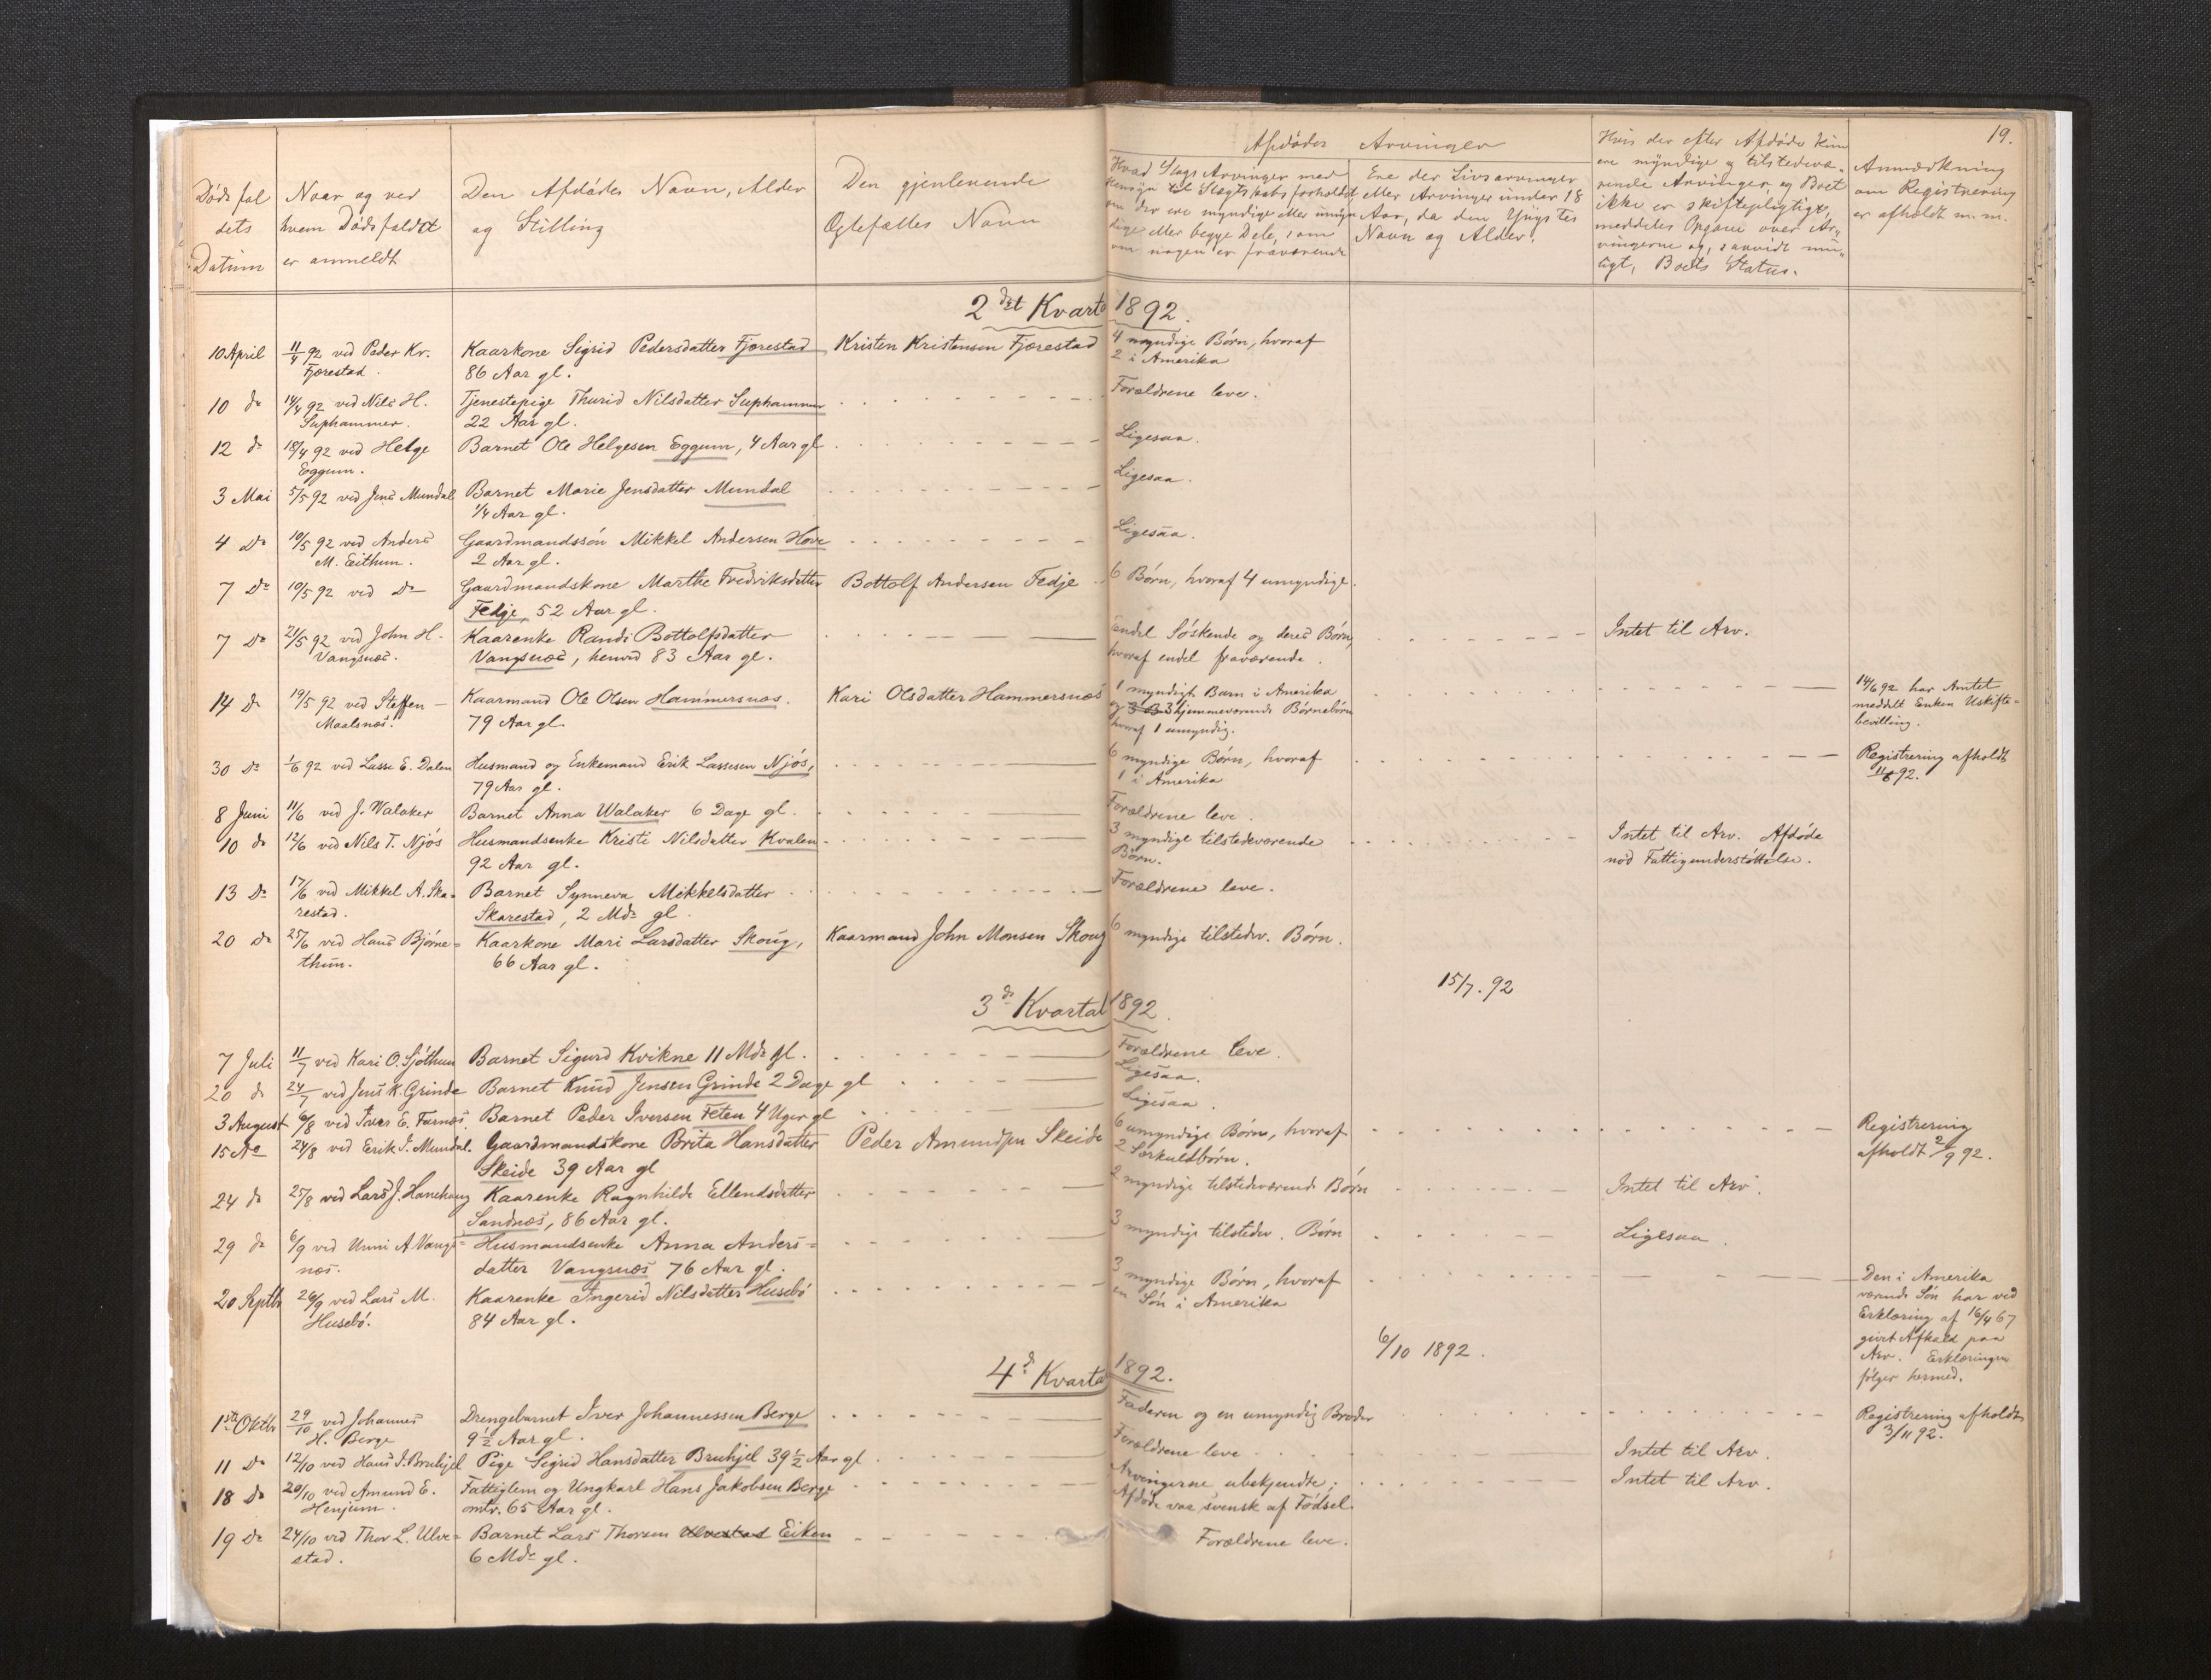 19.
Dödsfal
dets
Datum
Naar og ved
hvem Dödsfaldet
er anmeldt
Den Afdödes Navn, Alder
og Stilling
Den gjenlevende
Ægtefælles Navn
Afdödes Arvinger
Hvad Slags Arvinger med
Hensyn til Slægtskabsforholdet,
om der ere myndige eller umyn
dige, eller begge Dele, samt
om nogen er fraværende
Ere der Livsarvinger
eller Arvinger under 18
Aar, da den Yngstes
Navn og Alder.
Hvis der efter Afdöde kun
ere myndige og tilstedevæ-
rende Arvinger, og Boet
ikke er skiftepligtigt,
meddeles Opgave over Ar-
vingerne og, saavidt mu-
ligt, Boets Status.
Anmærkning
om Registrering
er afholdt m. m.
2det Kvart 1892.
10 April 11/4 92 ved Peder Kr. Kaarkone Sigrid Pedersdatter Fjærestad Kristen Kristensen Fjærestad 4 myndige Börn, hvoraf
Fjærestad. 86 Aar gl. 2 i Amerika
10 do 14/4 92 ved Nils H. Tjenestepige Thurid Nilsdatter Suphammer Forældrene leve.
Suphammer. 22 Aar gl.
12 do 18/4 92 ved Helge Barnet Ole Helgesen Eggum, 4 Aar gl Ligesaa.
Eggum.
3 Mai 5/5 92 ved Jens Mundal Barnet Marie Jensdatter Mundal Ligesaa.
1/4 Aar gl.
4 Do 10/5 92 ved Anders Gaardmandssön Mikkel Andersen Hove Ligesaa.
M. Eithun. 2 Aar gl.
7 Do 10/5 92 ved Do Gaardmandskone Marthe Fredriksdatter Bottolf Andersen Fedje 6 Börn, hvoraf 4 umyndige.
Fedje, 52 Aar gl.
7 Do 21/5 92 ved John H. Kaarenke Randi Bottolfsdatter Endel Söskende og deres Börn, Intet til Arv.
Vangsnæs. Vangsnæs, henved 83 Aar gl. hvoraf endel fraværende.
14 Do 19/5 92 ved Steffen Kaarmand Ole Olsen Hammersnæs. Kari Olsdatter Hammersnæs 1 myndigt Barn i Amerika 14/6 92 har Amtet
Maalsnæs. 79 Aar gl. og 3 B 3 hjemmeværende Börnebörn meddelt Enken Uskifte-
hvoraf 1 umyndig. bevilling.
30 Do 1/6 92 ved Lasse E. Dalen Husmand og Enkemand Erik Lassesen Njös, 6 myndige Börn, hvoraf Registrering afholdt
79 Aar gl. 1 i Amerika 11/6 92.
8 Juni 11/6 ved J. Walaker Barnet Anna Walaker 6 Dage gl. Forældrene leve.
10 do 12/6 ved Nils T. Njös Husmandsenke Kristi Nilsdatter Kvalen 3 myndige tilstedeværende Intet til Arv. Afdöde
92 Aar gl. Börn. nöd Fattigunderstöttelse.
13 Do 17/6 ved Mikkel A. Ska- Barnet Synneva Mikkelsdatter Forældrene leve.
restad. Skarestad, 2 Mdr gl
20 do 25/6 ved Hans Björne- Kaarkone Mari Larsdatter Skoug, Kaarmand John Monsen Skoug 6 myndige tilstedv. Börn.
thun. 66 Aar gl.
15/7. 92
3de Kvartal 1892.
7 Juli 11/7 ved Kari O. Sjöthun Barnet Sigurd Kvikne 11 Mdr gl. Forældrene leve.
20 do 24/7 ved Jens K. Grinde Barnet Knud Jensen Grinde 2 Dage gl Ligesaa.
3 August 6/8 ved Iver E. Farnæs. Barnet Peder Iversen Feten 4 Uger gl Ligesaa.
15 do 24/8 ved Erik J. Mundal. Gaardmandskone Brita Hansdatter Peder Amundsen Skeide 6 umyndige Börn, hvoraf Registrering
Skeide 39 Aar gl 2 Særkuldbörn. afholdt 2/9 92.
24 do 25/8 ved Lars J. Hanehaug Kaarenke Ragnhilde Ellendsdatter 2 myndige tilstedeværende Börn Intet til Arv.
Sandnæs, 86 Aar gl.
29 do 6/9 ved Unni A Vangs- Husmandsenke Anna Anders- 3 myndige tilstedev. Börn Ligesaa.
næs. datter Vangsnæs 76 Aar gl.
20 Septbr 26/9 ved Lars M. Kaarenke Ingerid Nilsdatter Husebö 3 myndige Börn, hvoraf Den i Amerika
Husebö. 84 Aar gl. en Sön i Amerika værende Sön har ved
Erklæring af 16/4 67
givet Afkald paa
Arv. Erklæringen
fölger hermed.
6/10 1892.
4de Kvarta 1892.
1ste Oktbr 29/10 ved Johannes Drengebarnet Iver Johannessen Berge Faderen og en umyndig Broder Registrering afholdt
H. Berge 9 1/2 Aar gl. 3/11 92.
11 Do 12/10 ved Hans J. Bruhjel Pige Sigrid Hansdatter Bruhjel 39 1/2 Aar gl Forældrene leve Intet til Arv.
18 Do 20/10 ved Amund E. Fattiglem og Ungkarl Hans Jakobsen Berge Arvingerne ubekjendte; Intet til Arv.
Henjum. omtr. 65 Aar gl. Afdöde var svensk af Födsel.
19 Do 24/10 ved Thor L. Ulve- Barnet Lars Thorsen Ulvestad Eiken Forældrene leve.
stad. 6 Mdr gl.